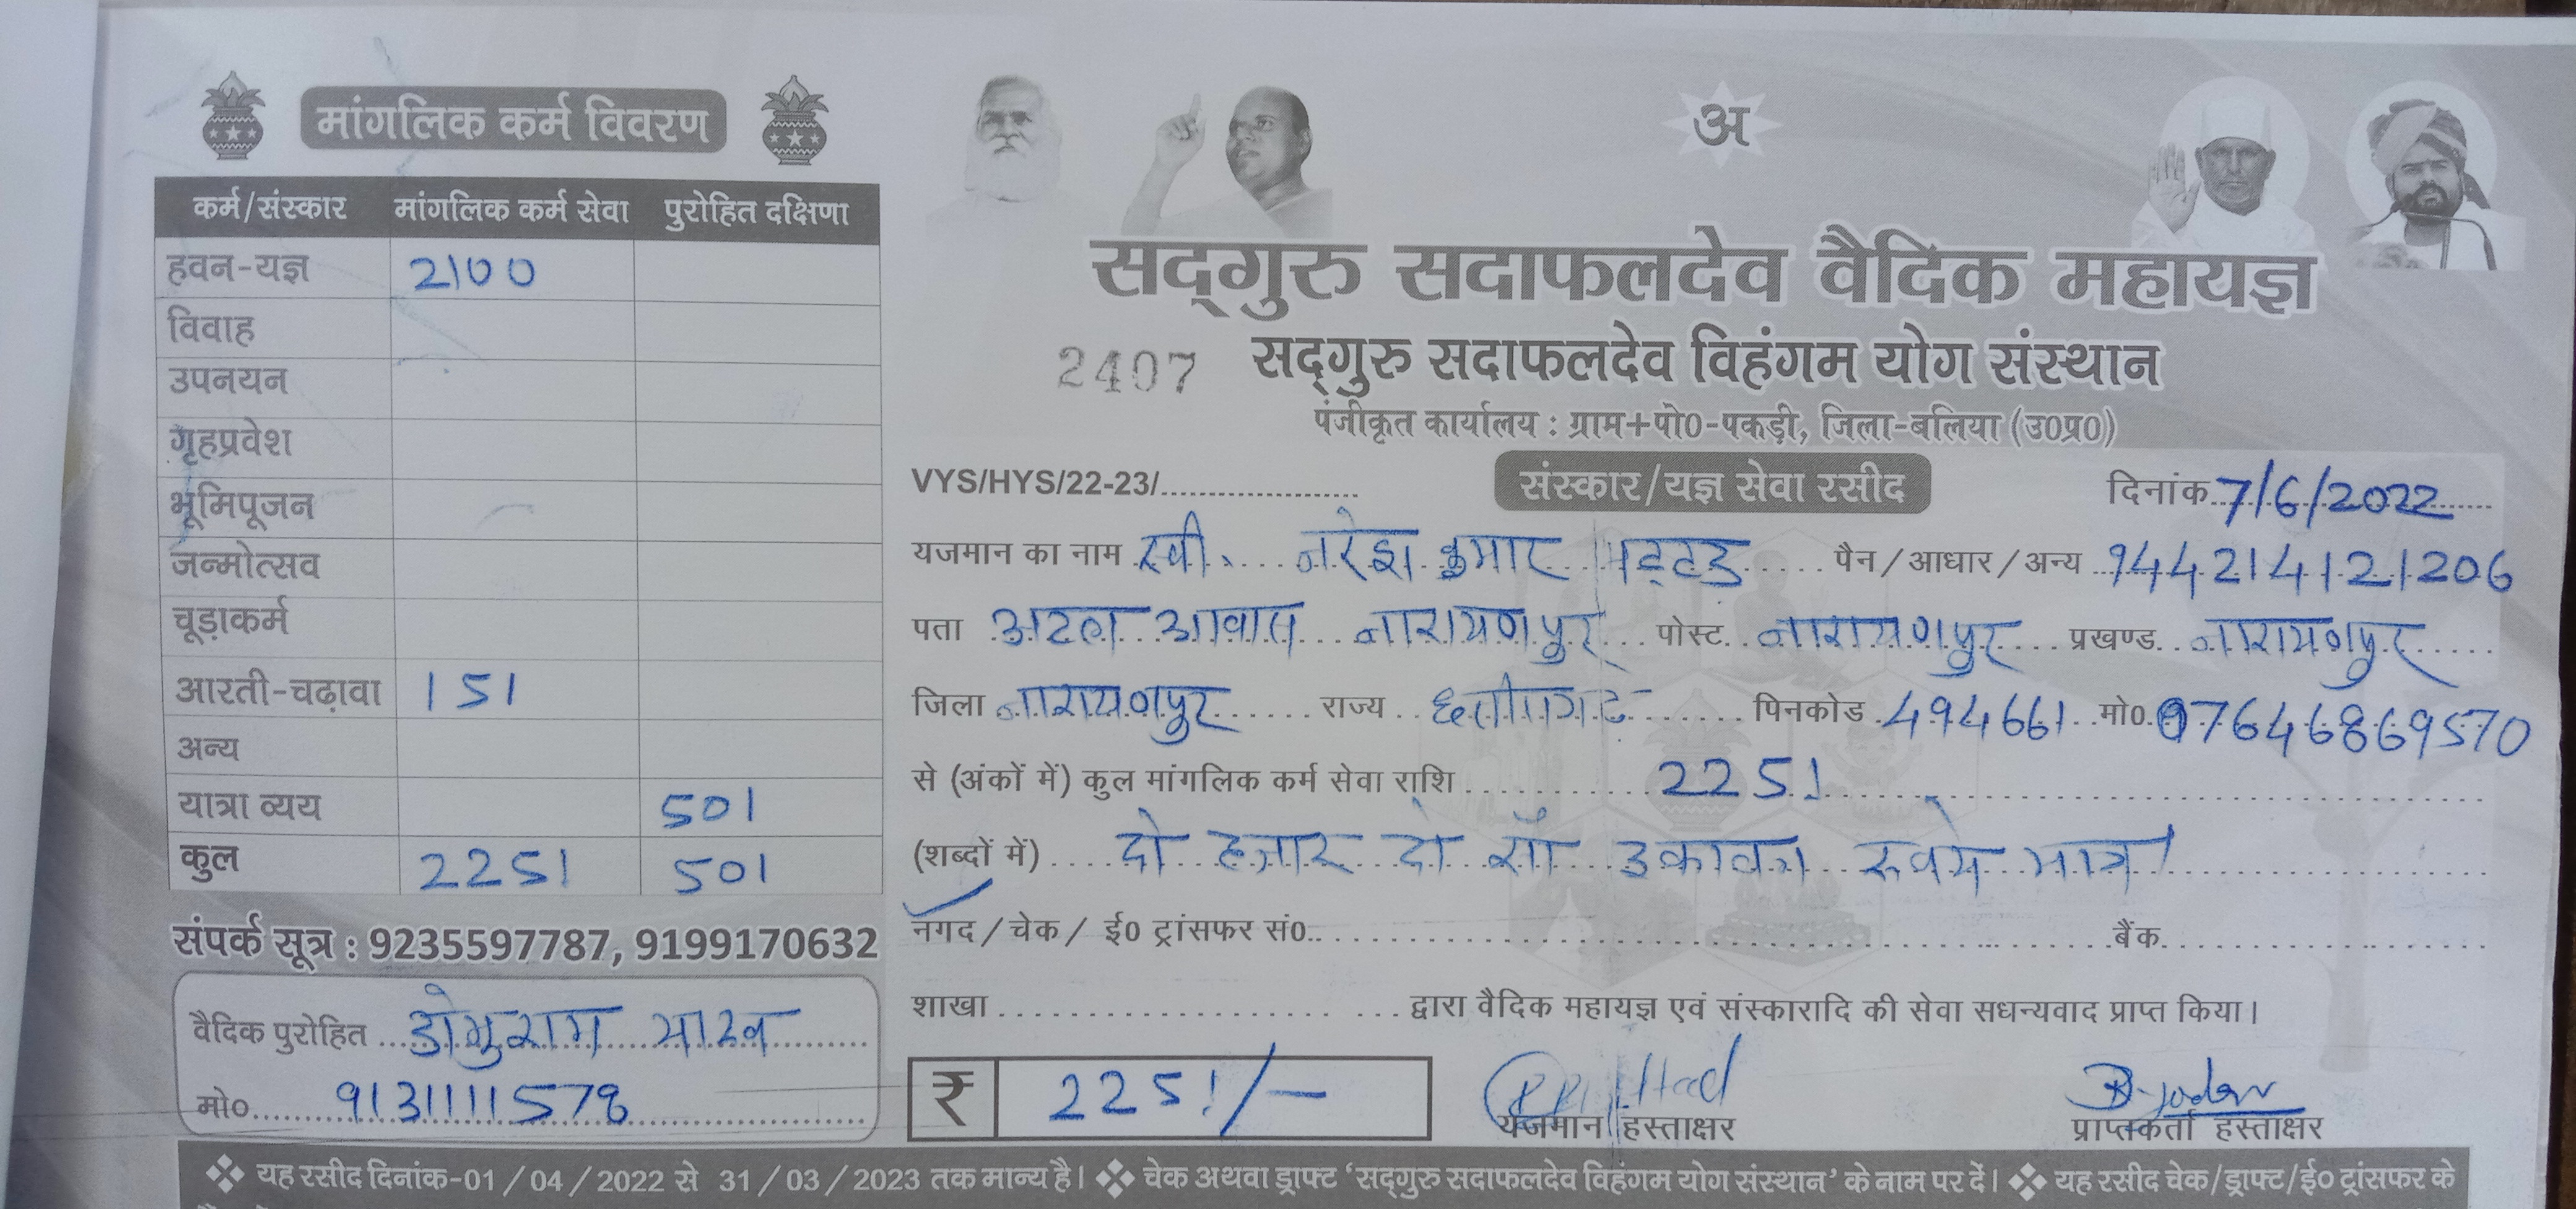 मांगलिक कर्म विवरण
कर्म/संस्कार मांगलिक कर्म सेवा पुरोहित दक्षिणा
हवन-यज्ञ 2100
विवाह
उपनयन
गृहप्रवेश
भूमिपूजन
जन्मोत्सव
चूड़ाकर्म
आरती-चढ़ावा 151
अन्य
यात्रा व्यय 501
कुल 2251 501
संपर्क सूत्र : 9235597787, 9199170632
वैदिक पुरोहित
मो0 9131111578
अ
सद्गुरु सदाफलदेव वैदिक महायज्ञ
2407 सद्गुरु सदाफलदेव विहंगम योग संस्थान
पंजीकृत कार्यालय : ग्राम+पो0-पकड़ी, जिला-बलिया (उ0प्र0)
VYS/HYS/22-23/ संस्कार/यज्ञ सेवा रसीद दिनांक 7/6/2022
यजमान का नाम श्री. नरेश कुमार पैन/आधार/अन्य 944214121206
पता अटल आवास नारायणपुर पोस्ट नारायणपुर प्रखण्ड नारायणपुर
जिला नारायणपुर राज्य छत्तीसगढ़ पिनकोड 494661 मो0
से (अंकों में) कुल मांगलिक कर्म सेवा राशि 2251
(शब्दों में) दो हजार दो सौ रूपये मात्र
नगद / चेक / ई0 ट्रांसफर सं0 बैंक
शाखा द्वारा वैदिक महायज्ञ एवं संस्कारादि की सेवा सधन्यवाद प्राप्त किया।
₹ 2251/-
यजमान हस्ताक्षर प्राप्तकर्ता हस्ताक्षर
❖ यह रसीद दिनांक-01/04/2022 से 31/03/2023 तक मान्य है। ❖ चेक अथवा ड्राफ्ट 'सद्गुरु सदाफलदेव विहंगम योग संस्थान' के नाम पर दें। ❖ यह रसीद चेक/ड्राफ्ट/ई0 ट्रांसफर के